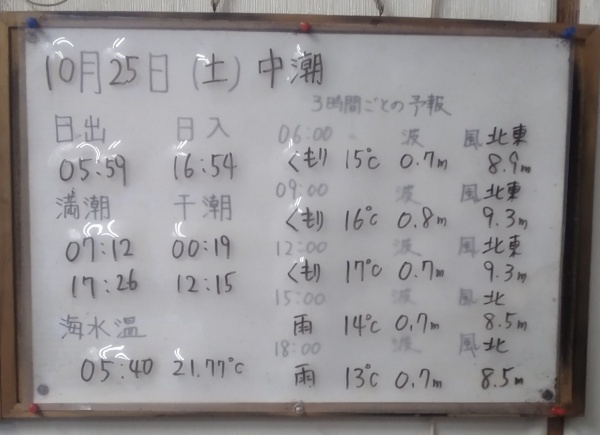 10月25日 (土) 中潮
3時間ごとの予報
日出 日入
05:59 16:54
満潮 干潮
07:12 00:19
17:26 12:15
海水温
05:40 21.77℃
06:00 波 風 北東
くもり 15℃ 0.7m 8.9m
09:00 波 風 北東
くもり 16℃ 0.8m 9.3m
12:00 波 風 北東
くもり 17℃ 0.7m 9.3m
15:00 波 風 北
雨 14℃ 0.7m 8.5m
18:00 波 風 北
雨 13℃ 0.7m 8.5m